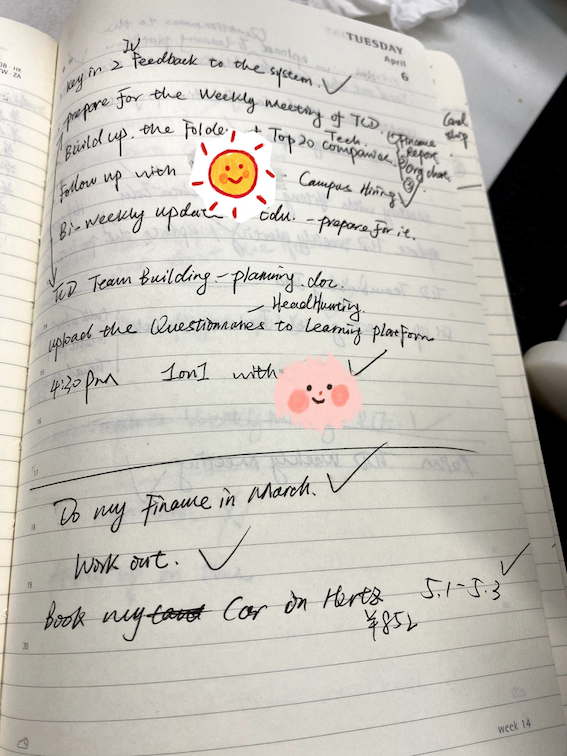 TUESDAY
April
6
08 · HK
TW · ZA
IV
key in 2 Feedback to the system. ✓
prepare for the Weekly Meeting of TCD.
Build up the Folde + Top 20 Tech. companies.
① Finance
Report.
② Org chat.
③
Follow up with · Campus Hiring ✓
Bi-weekly updat Edu. - prepare for it.
TCD Team Building - planning. doc.
- HeadHunting.
upload the Questionnaires to Learning platform
4:30 pm 1on1 with ✓
Do my Finance in March. ✓
Work out. ✓
Book my Car on Hertz 5.1-5.3 ✓
¥852
15
16
17
18
19
20
week 14